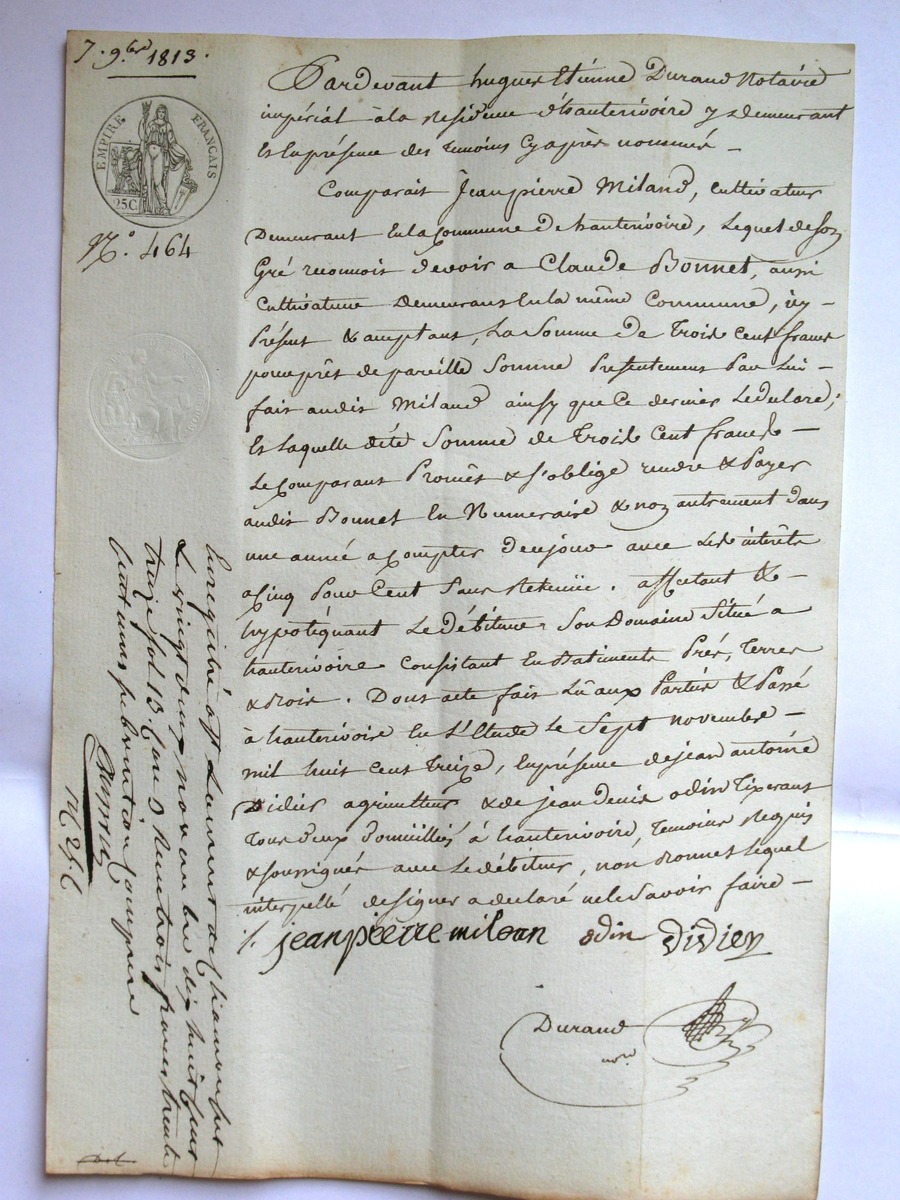 7. 9.bre 1813.
EMPIRE FRANÇAIS
25C.
N.° 464
Pardevant hugues Etienne Durand Notaire
impérial à la Residence d'hauterivoire y demeurant
Et En présence des temoins Cyaprès nommés —
Comparait Jeanpierre Miland, Cultivateur
Demeurant En la Commune de hauterivoire, Lequel de son
Gré reconnois devoir a Claude Bonnet, aussi
Cultivateur Demeurant En la même Commune, icy —
Présent & acceptant, La Somme de Trois Cent francs
pour prêt de pareille Somme Presentement Par Lui —
fait audit Miland ainsy que Ce dernier Le déclare,
Et Laquelle dite Somme de Trois Cent francs —
Le Comparant Promêt & s'oblige rendre & Payer
audit Bonnet En Numeraire & non autrement dans
une année a Compter de ce jour avec Les interêts
a Cinq Pour Cent Sans Retenüe. affectant & —
hypotéquant Le débiteur Son Domaine Situé a
hauterivoire Consistant En Batiments Prés, Terres
& Bois. Dont acte fait Lû aux Parties & Passé
à hauterivoire En L'Etude Le Sept novembre —
mil huit Cent Treize, En présence de jean antoine
Didier agriculteur & de jean Denis odin Tixerant
Tous deux Domiciliés à hauterivoire, Temoins Requis
& soussignés avec Le débiteur, non Bonnet Lequel
interpellé de signer a déclaré ne le Savoir faire —
jeanpierre milaan odin didiey
Durand
nore
Enregistré a St Laurent de Chamousset
Le vingt deux novembre dix huit Cent
treize fol 13 Reçu trois francs trente
Centimes subvention Comprise